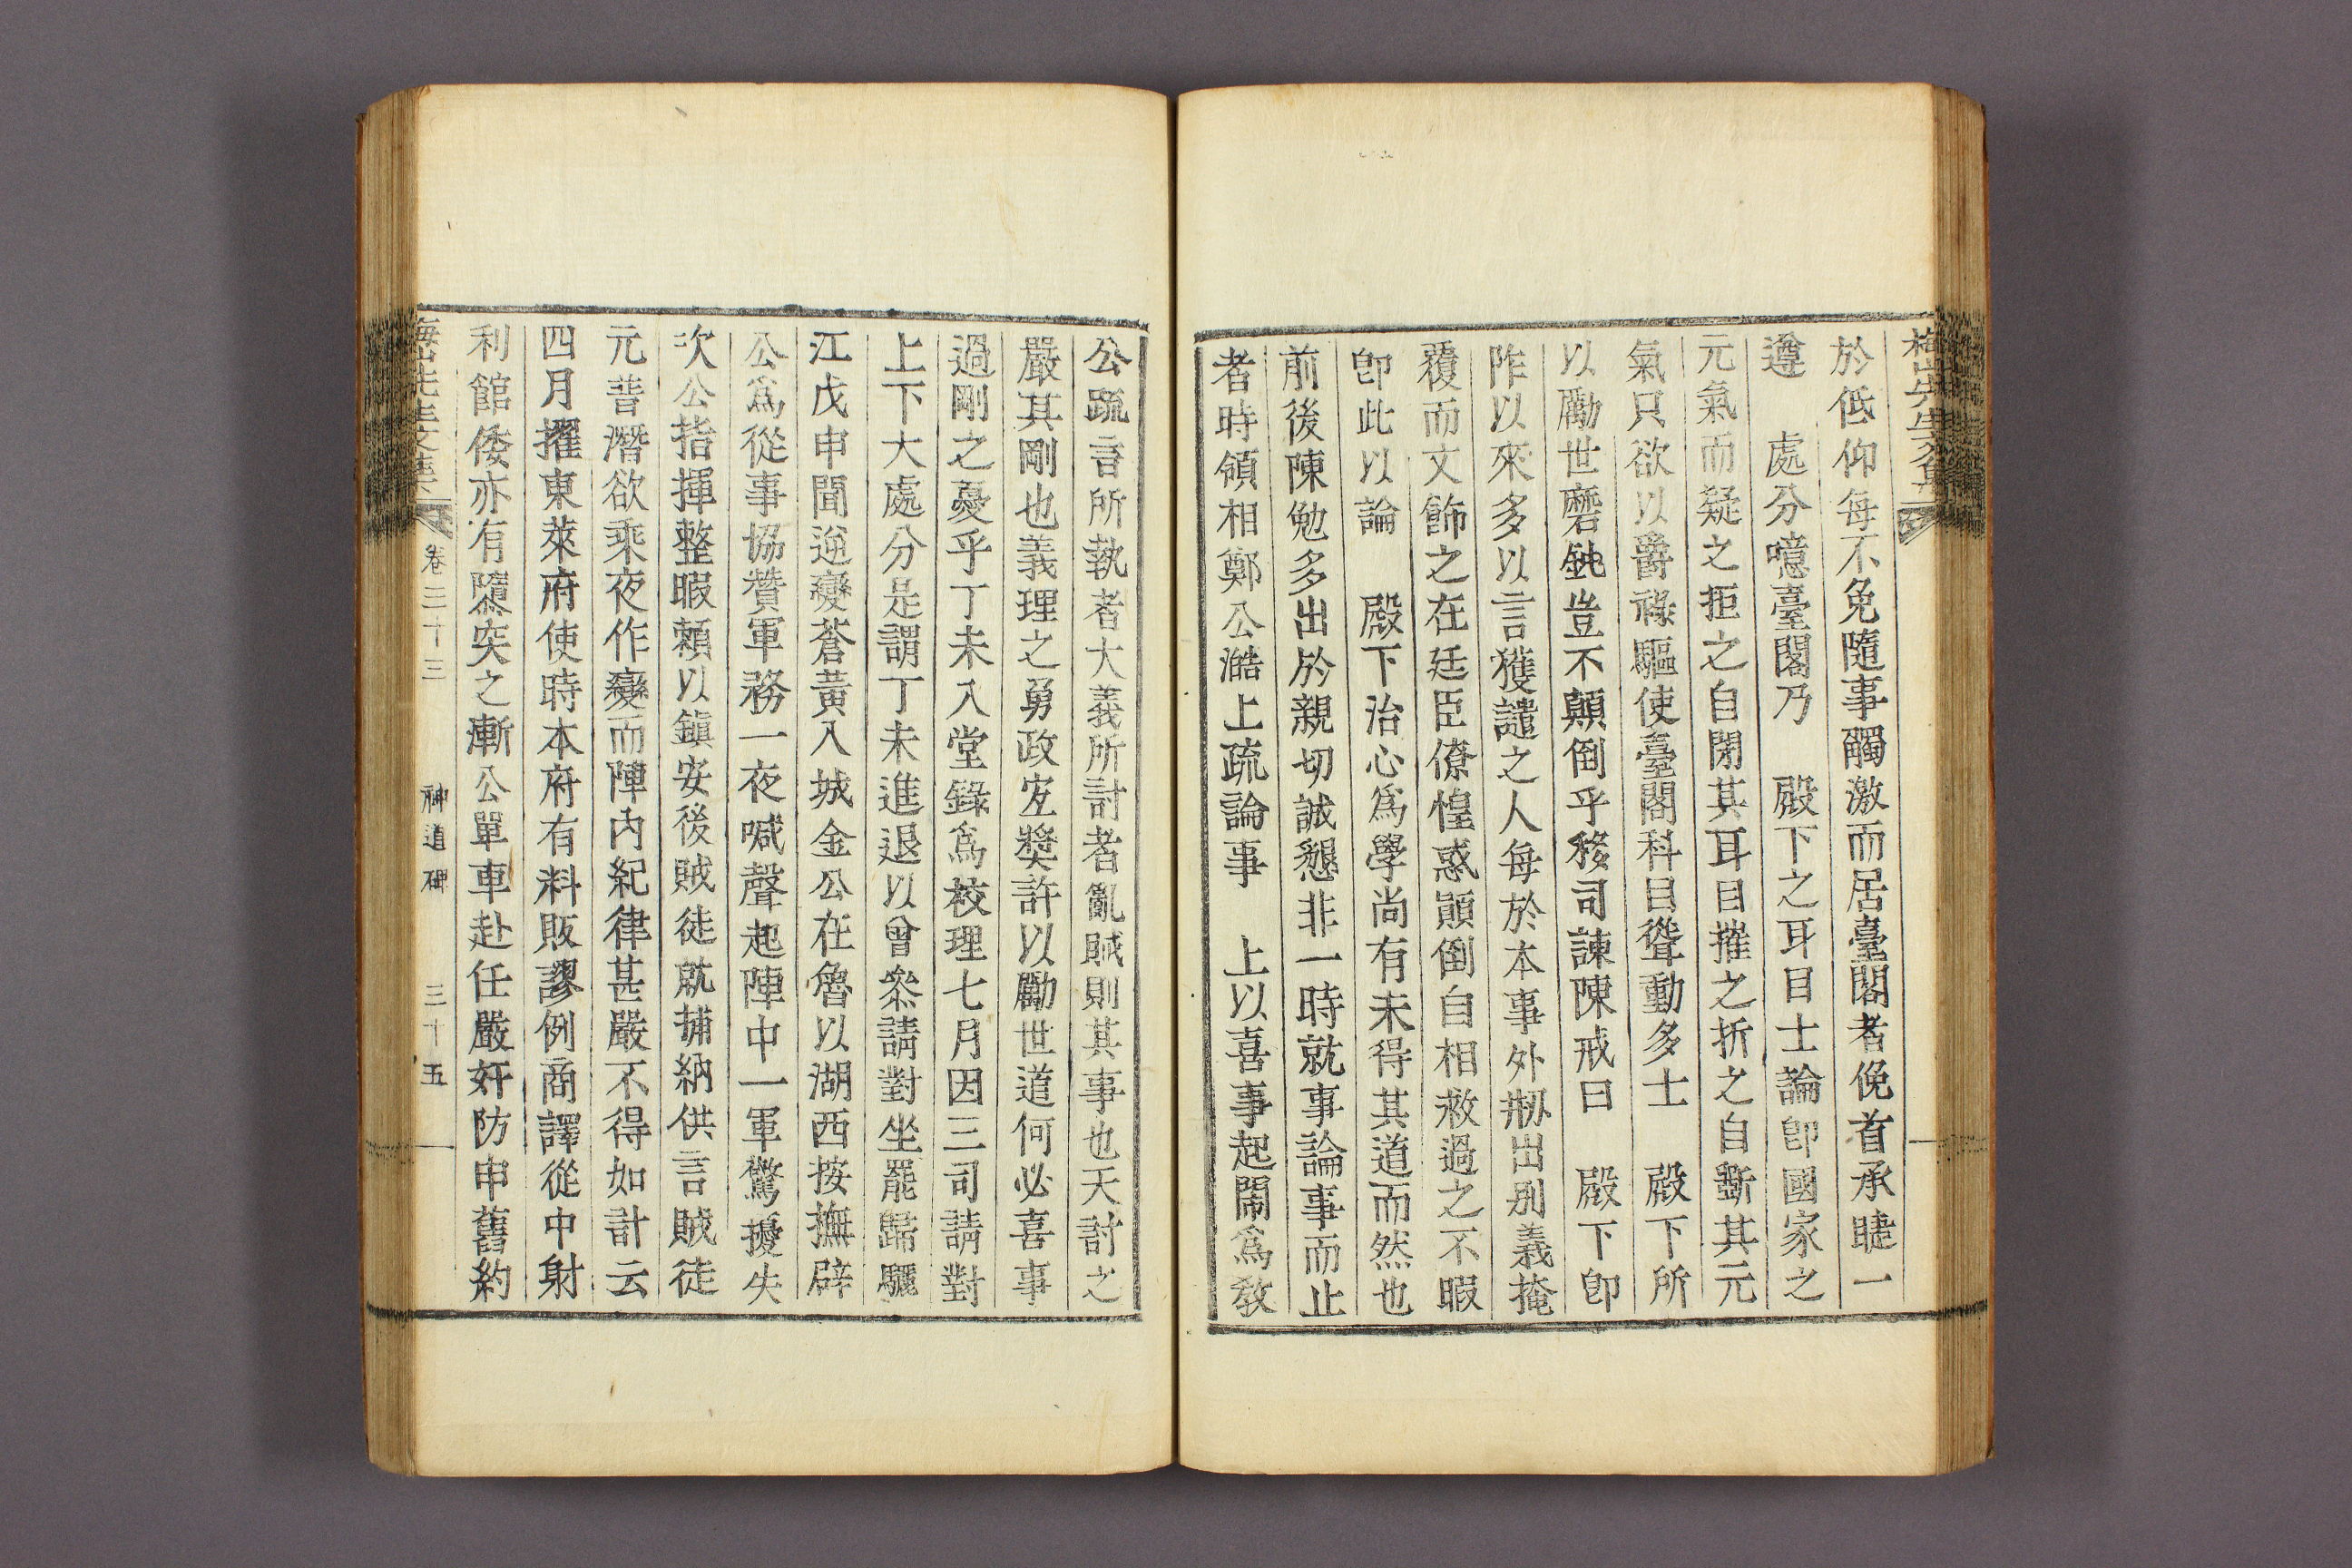 梅山先生文集
於低仰每不免隨事觸激而居臺閣者俛首承睫一
遵 處分噫臺閣乃 殿下之耳目士論卽國家之
元氣而疑之拒之自閉其耳目摧之折之自斲其元
氣只欲以爵祿驅使臺閣科目聳動多士 殿下所
以勵世磨鈍豈不顚倒乎移司諫陳戒曰 殿下卽
阼以來多以言獲譴之人每於本事外刱出別義掩
覆而文飾之在廷臣僚惶惑顚倒自相救過之不暇
卽此以論 殿下治心爲學尚有未得其道而然也
前後陳勉多出於親切誠懇非一時就事論事而止
者時領相鄭公澔上疏論事 上以喜事起鬧爲敎
公疏言所執者大義所討者亂賊則其事也天討之
嚴其剛也義理之勇政宜獎許以勵世道何必喜事
過剛之憂乎丁未入堂錄爲校理七月因三司請對
上下大處分是謂丁未進退以曾叅請對坐罷歸驪
江戊申聞逆變蒼黃入城金公在魯以湖西按撫辟
公爲從事協贊軍務一夜喊聲起陣中一軍驚擾失
次公指揮整暇賴以鎭安後賊徒就捕納供言賊徒
元普潛欲乘夜作變而陣內紀律甚嚴不得如計云
四月擢東萊府使時本府有料販謬例商譯從中射
利館倭亦有隳突之漸公單車赴任嚴奸防申舊約
梅山先生文集 卷三十三 神道碑 三十五